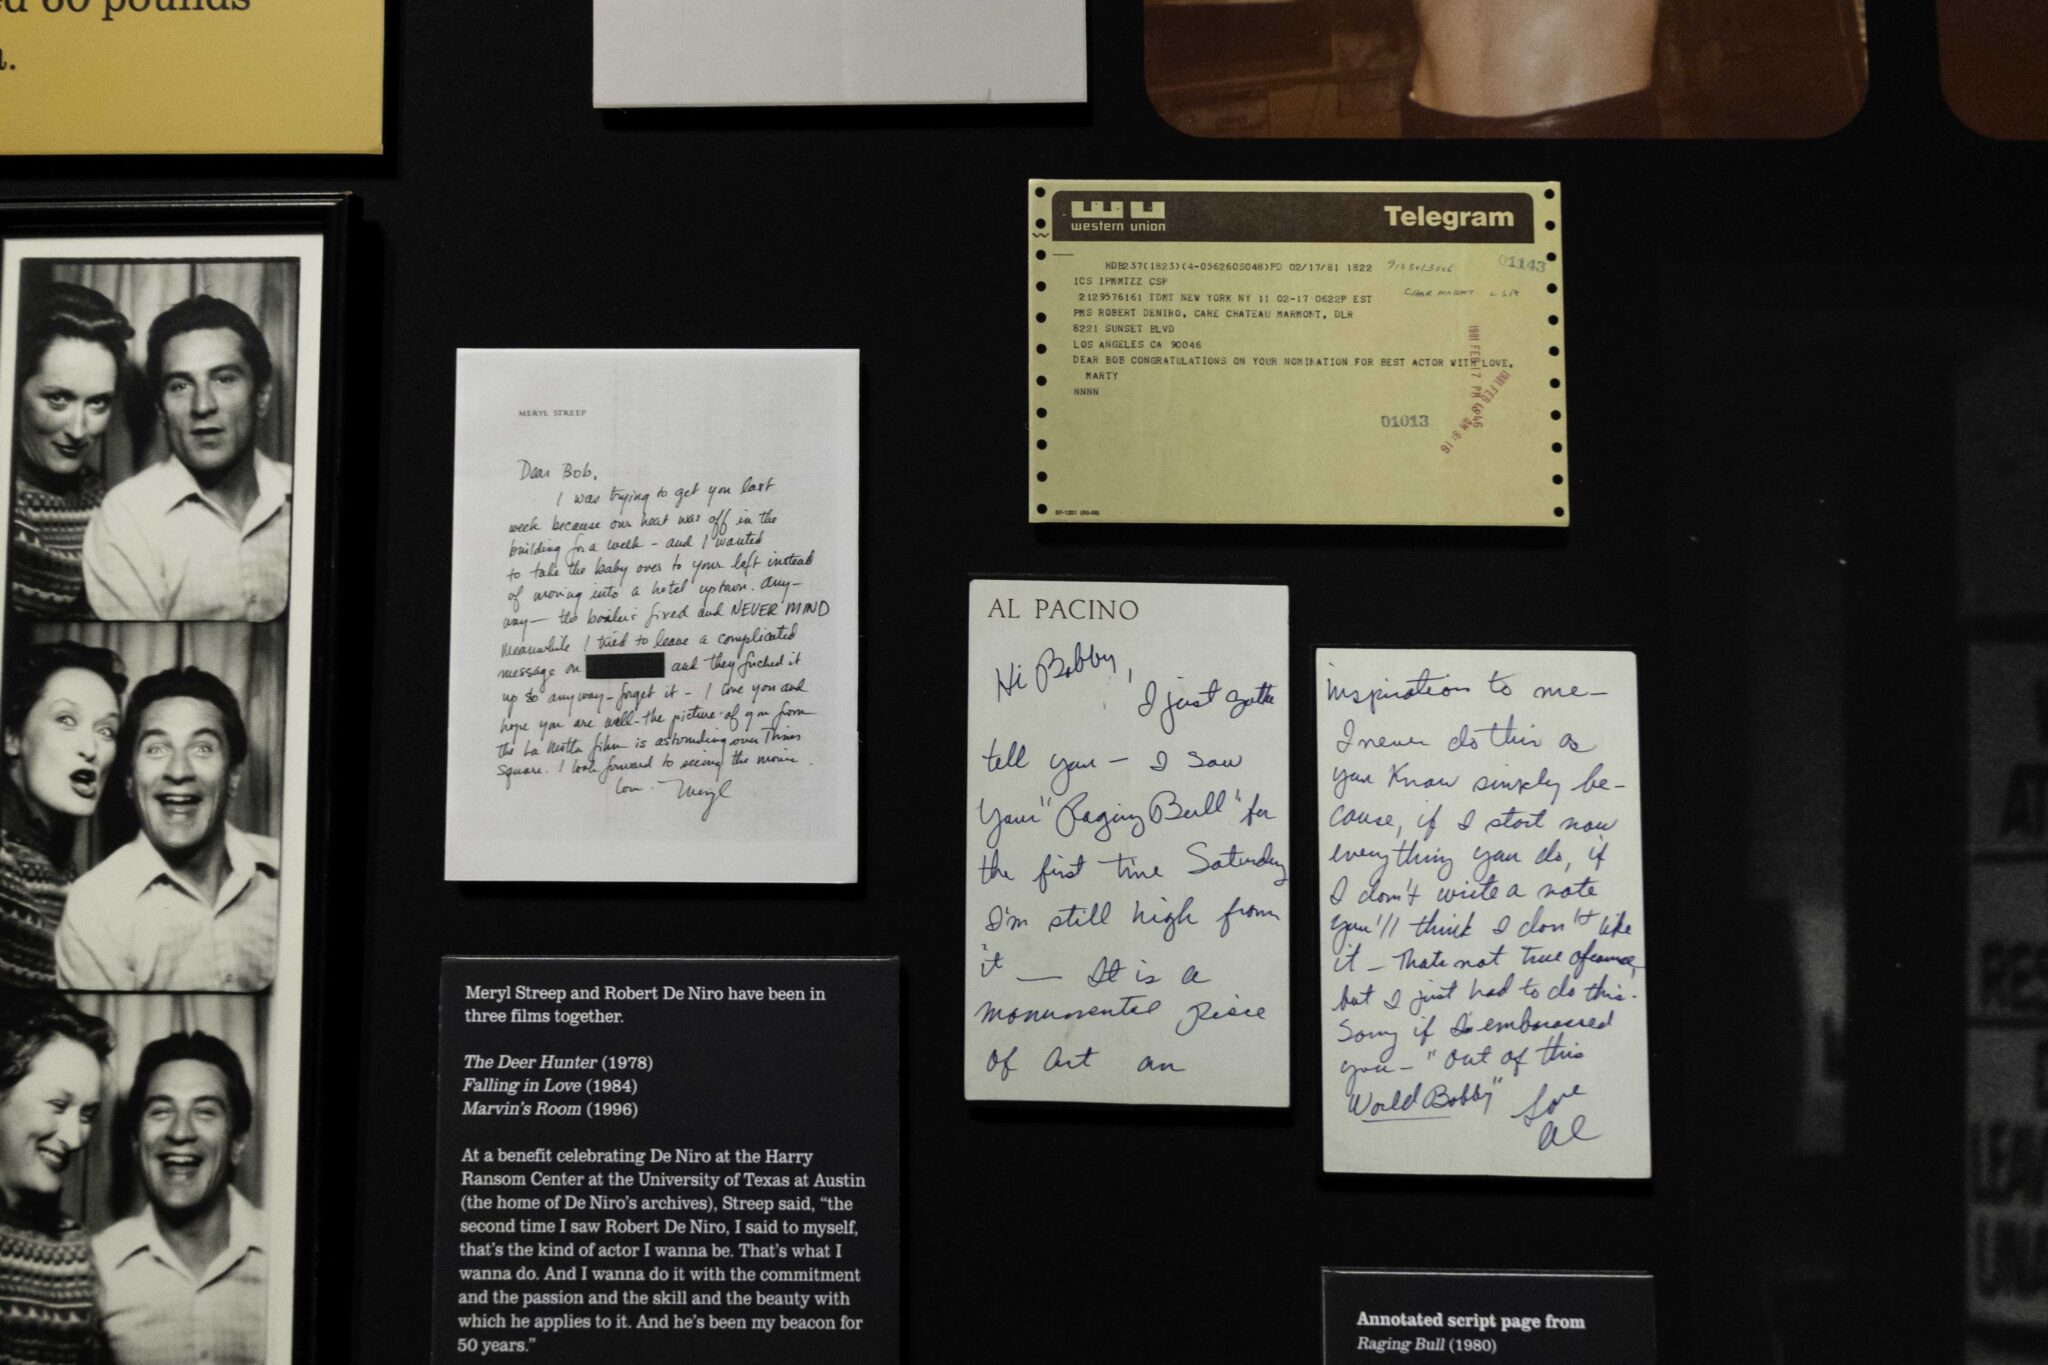 ed 60 pounds
a.
western union
Telegram
HDB237(1823)(4-056260S048)PD 02/17/81 1822
01143
ICS IPMMTZZ CSP
2129576161 TDMT NEW YORK NY 11 02-17 0622P EST
PMS ROBERT DENIRO, CARE CHATEAU MARMONT, DLR
8221 SUNSET BLVD
LOS ANGELES CA 90046
DEAR BOB CONGRATULATIONS ON YOUR NOMINATION FOR BEST ACTOR WITH LOVE,
MARTY
NNNN
01013
MERYL STREEP
Dear Bob,
I was trying to get you last
week because our heat was off in the
building for a week - and I wanted
to take the baby over to your loft instead
of moving into a hotel uptown. Any-
way - the boiler's fixed and NEVER MIND
Meanwhile I tried to leave a complicated
message on and they fucked it
up so anyway - forget it - I love you and
hope you are well - the picture of you from
the La Motta film is astounding over Times
Square. I look forward to seeing the movie.
love. Meryl
AL PACINO
Hi Bobby,
I just gotta
tell you - I saw
your "Raging Bull" for
the first time Saturday
I'm still high from
it - It is a
monumental piece
of art an
inspiration to me-
I never do this as
you know simply be-
cause, if I start now
everything you do, if
I don't write a note
you'll think I don't like
it - Thats not true of course,
but I just had to do this.
Sorry if I embarassed
you - "Out of this
World Bobby" Love
Al
Meryl Streep and Robert De Niro have been in
three films together.
The Deer Hunter (1978)
Falling in Love (1984)
Marvin's Room (1996)
At a benefit celebrating De Niro at the Harry
Ransom Center at the University of Texas at Austin
(the home of De Niro's archives), Streep said, “the
second time I saw Robert De Niro, I said to myself,
that's the kind of actor I wanna be. That's what I
wanna do. And I wanna do it with the commitment
and the passion and the skill and the beauty with
which he applies to it. And he's been my beacon for
50 years.”
Annotated script page from
Raging Bull (1980)